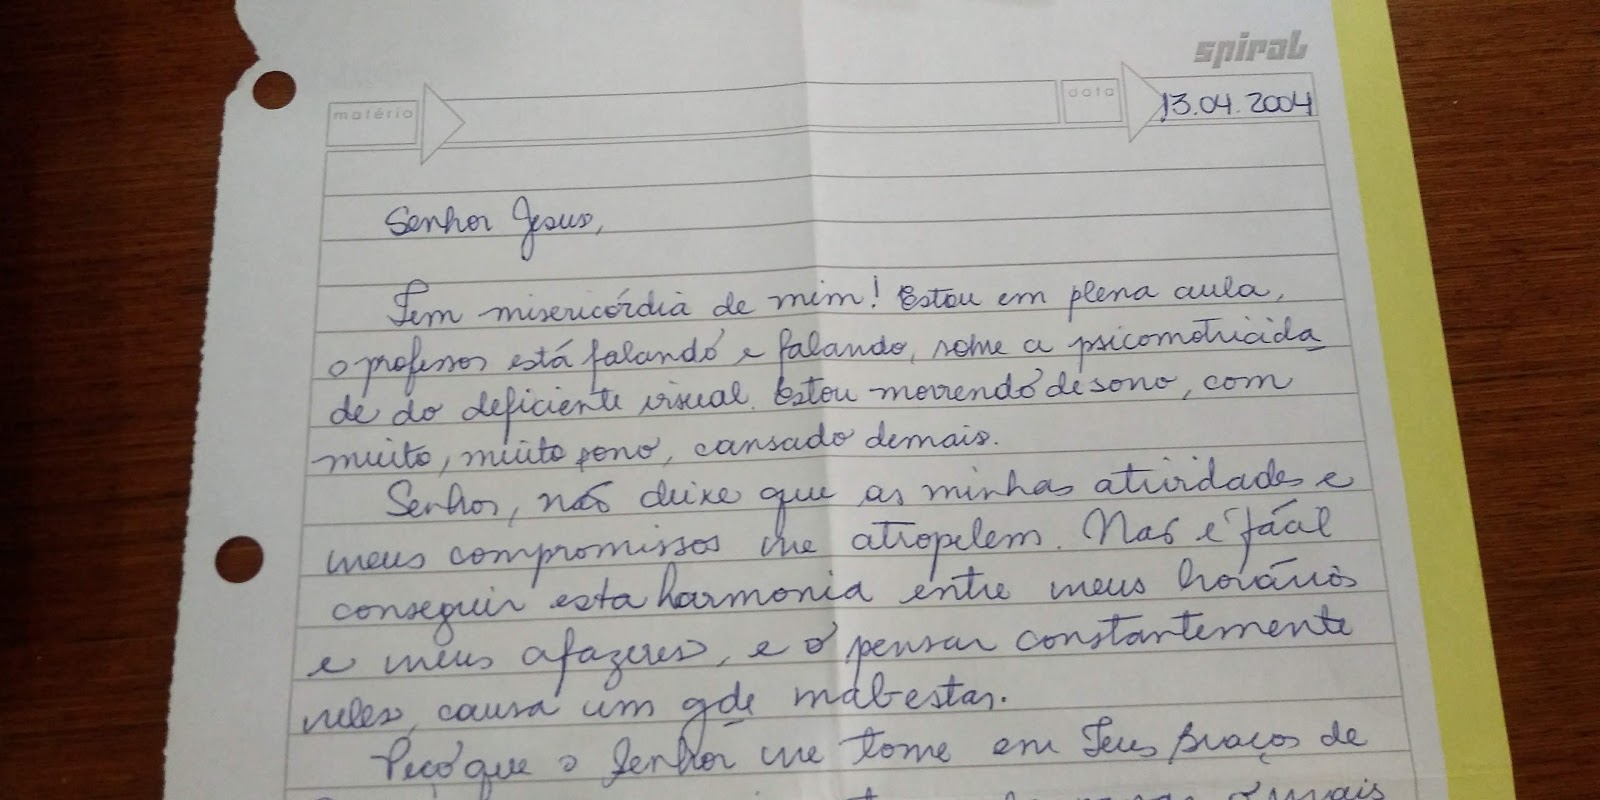 spiral
matéria
data
13.04.2004
Senhor Jesus,
Tem misericórdia de mim! Estou em plena aula,
o professor está falando e falando, sobre a psicomotricida
de do deficiente visual. Estou morrendo de sono, com
muito, muito sono, cansado demais.
Senhor, não deixe que as minhas atividades e
meus compromissos me atropelem. Não é fácil
conseguir esta harmonia entre meus horários
e meus afazeres, e o pensar constantemente
neles, causa um gde mal-estar.
Peço que o Senhor me tome em Teus braços de
mais